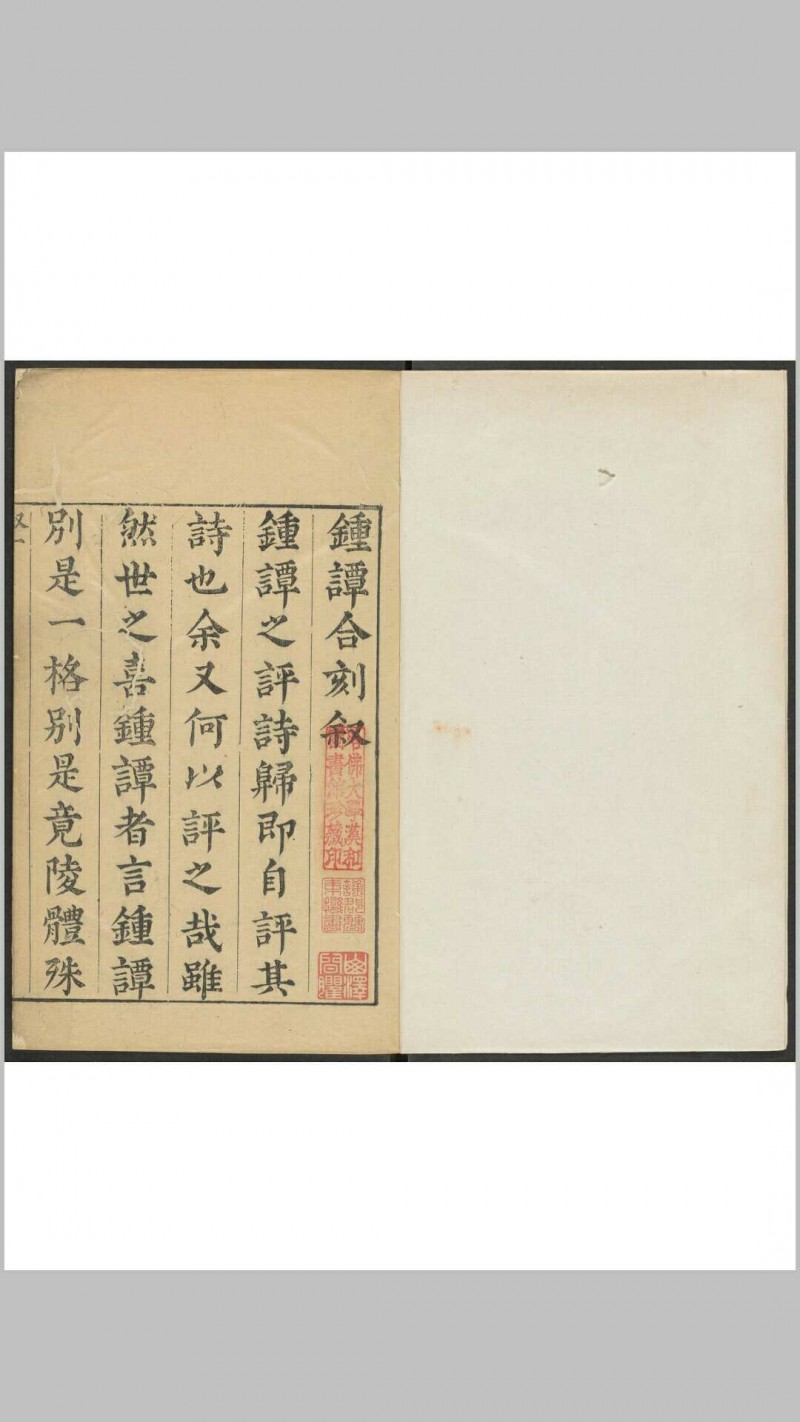 鍾譚合刻叙
鍾譚之評詩歸即自評其
詩也余又何以評之哉雖
然世之喜鍾譚者言鍾譚
別是一格别是竟陵體殊
叙一
哈佛大學漢和
圖書館珍藏印